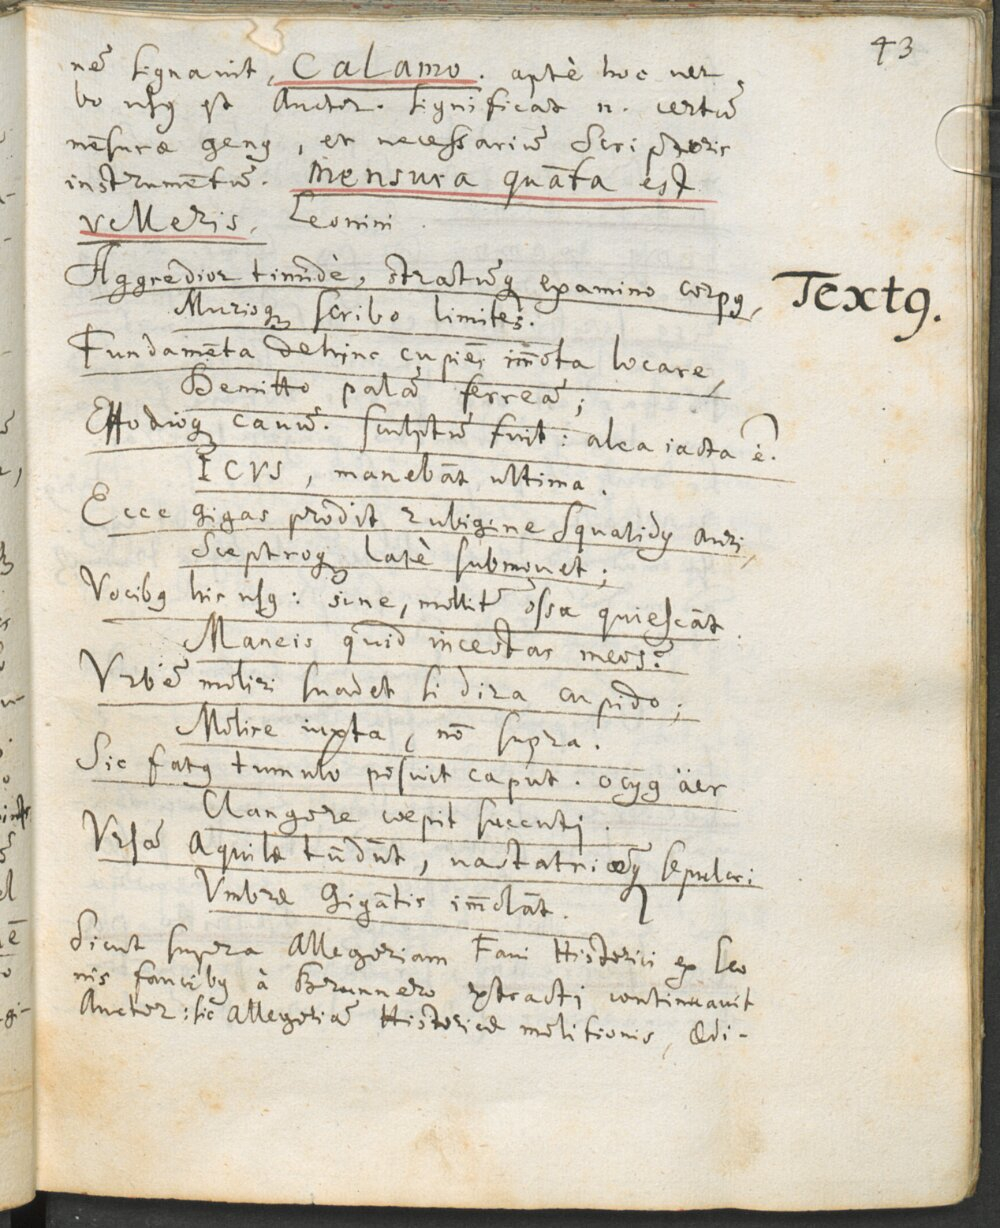 43
nē signauit, Calamo. aptè hoc ver
bo usq; est Auctor. significat n. certū
mēsuræ genq, et necessariū Scriptoris
instrumētū. Mensura quāta est
velleris. Leonini.
Aggredior timidè, stratūq examino corpq,
Textq.
Murisq scribo limites.
Fundamēta dehinc cupiēs im̄ota locare,
Demitto palā ferreā;
Effodioq cauū. sculptū fuit: alea iacta ē.
ICVS, manebāt ultima.
Ecce gigas prodit rubigine squalidq auri,
Sceptroq latè submouet;
Vocibq his usq: sine, mollitˢ ossa quiescāt
Maneis quid incestas meos?
Vrbē moliri suadet si dira cupido;
Molire iuxta, nō supra.
Sic fatq tumulo posuit caput. ocyq äer
Clangore coepit succuti.
Vrsā Aquilæ tūdūt, uastatricēq sepulcri
Vmbræ Gigātis im̄olāt.
Sicut supra Allegoriam Faui Historici ex Leo
nis faucibq à Brunnero extracti continuauit
Auctor: sic Allegoriā Historicæ molitionis, Ædi-